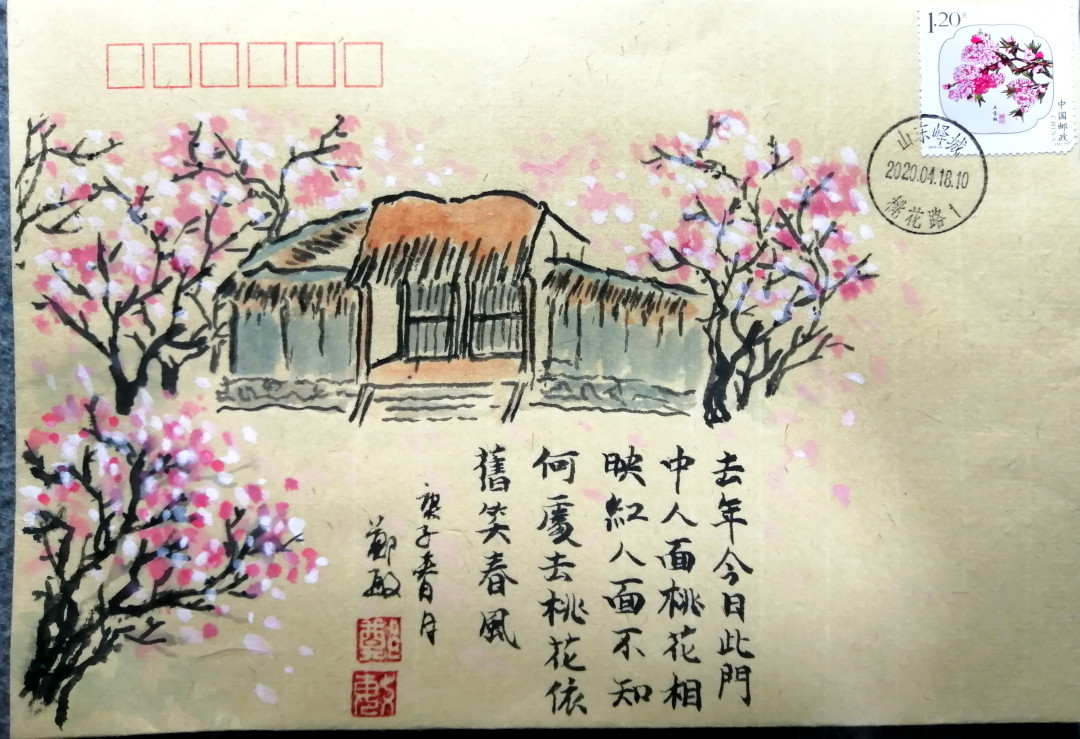 1.20元
中国邮政
山东峄城
2020.04.18.10
榴花路1
去年今日此門
中人面桃花相
映紅人面不知
何處去桃花依
舊笑春風
庚子春月
鄭敏
鄭
敏